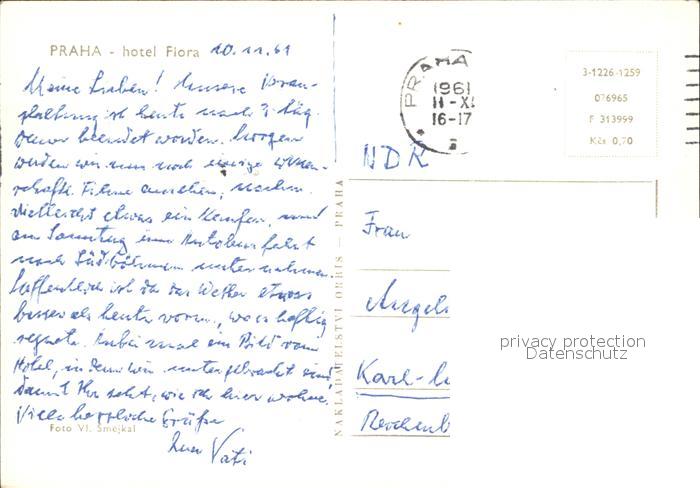 PRAHA - hotel Flora 10.11.61
Meine Lieben! Unsere Veran-
staltung ist heute nach 3 täg.
Dauer beendet worden. Morgen
werden wir uns noch einige wissen-
schaftl. Filme ansehen, nachm.
vielleicht etwas einkaufen, und
am Sonntag eine Autobusfahrt
nach Südböhmen unternehmen.
Hoffentlich ist da das Wetter etwas
besser als heute vorm., wo es heftig
regnete. Anbei mal ein Bild vom
Hotel, in dem wir untergebracht sind,
damit Ihr seht, wie ich hier wohne.
Viele herzliche Grüße
Euer Vati
Foto Vl. Smejkal
NAKLADATELSTVÍ ORBIS — PRAHA
PRAHA
1961
11-XI
16-17
3-1226-1259
076965
F 313999
Kčs 0,70
NDR
Frau
Angel
Karl-
Reichenb
privacy protection
Datenschutz